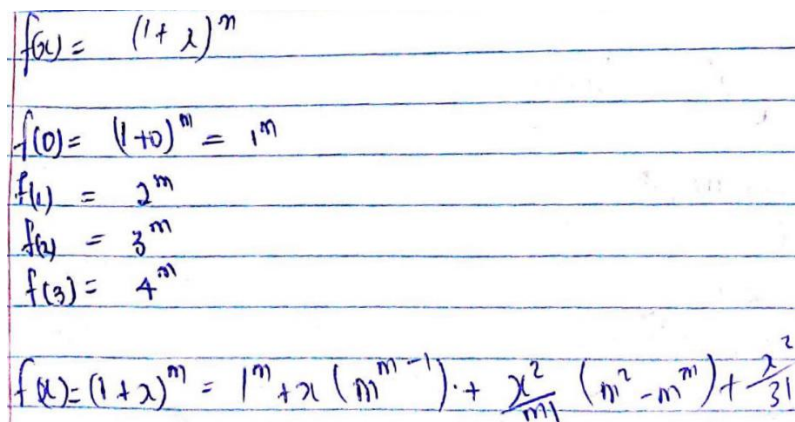 f(x) = (1 + x)^m
f(0) = (1+0)^m = 1^m
f(1) = 2^m
f(2) = 3^m
f(3) = 4^m
f(x) = (1 + x)^m = 1^m + x (m^{m-1}) . + x^2/m! (m^2 - m^m) + x^2/3!